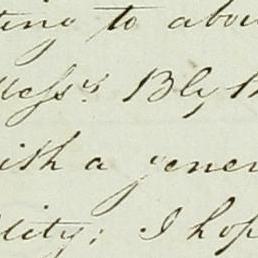 ting to abou
Mess.rs Bly th
with a gener
ility; I hop